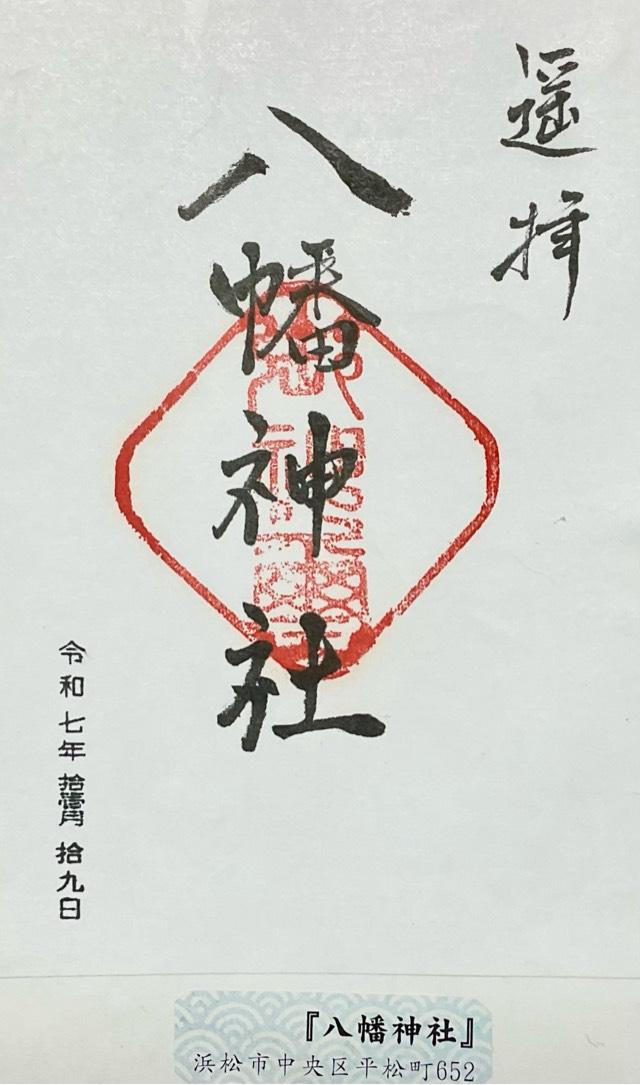 遥拝
八幡神社
令和七年 拾壹月 拾九日
『八幡神社』
浜松市中央区平松町652